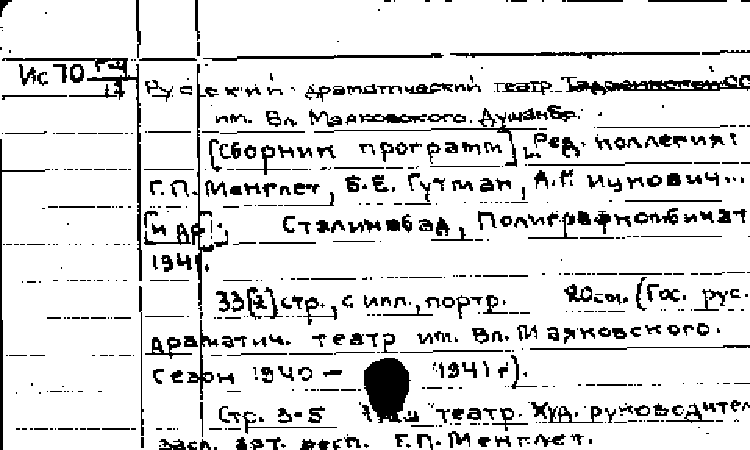 Ис 70 Г-4
17
Русский драматический театр Таджикской СС
им. Вл. Маяковского. Душанбе.
[Сборник программ]. Ред. коллегия:
Г.П. Менглет, Б.Е. Гутман, А.П.
[и др]. Сталинабад, Полиграфкомбинат
1941.
33[2] стр., с илл., портр. 20 см. (Гос. рус.
драматич. театр им. Вл. Маяковского.
Сезон 1940 - 1941 г).
Стр. 3-5 театр. Худ. руководител
засл. арт. респ. Г.П. Менглет.